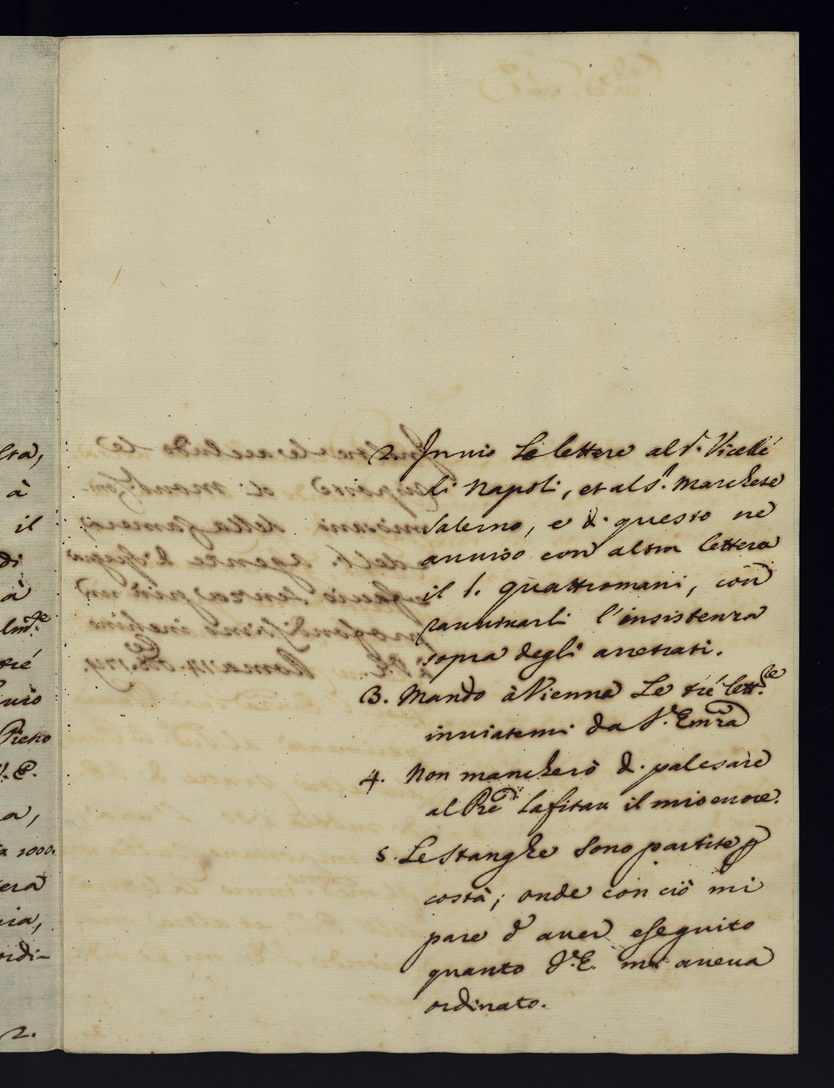 2. Inuio Le lettere al S.r Vicelle
di Napoli, et al S.r Marchese
Salerno, e di questo ne
auuiso con altra lettera
il S. Quattromani, con
l'insistenza
sopra degli arretrati.
3. Mando à Vienna Le tré lett.re
inuiatemi da V.ra Em.za
4. Non mancherò di palesare
al Pre Lafitau il mio errore.
5. Le Stanghe sono partite p
costà; onde con ciò mi
pare d'auer eseguito
quanto V.E. mi aueua
ordinato.
sta,
à
il
di
à
tré
Pietro
V.E.
a,
a 1000.
ordi-
2.